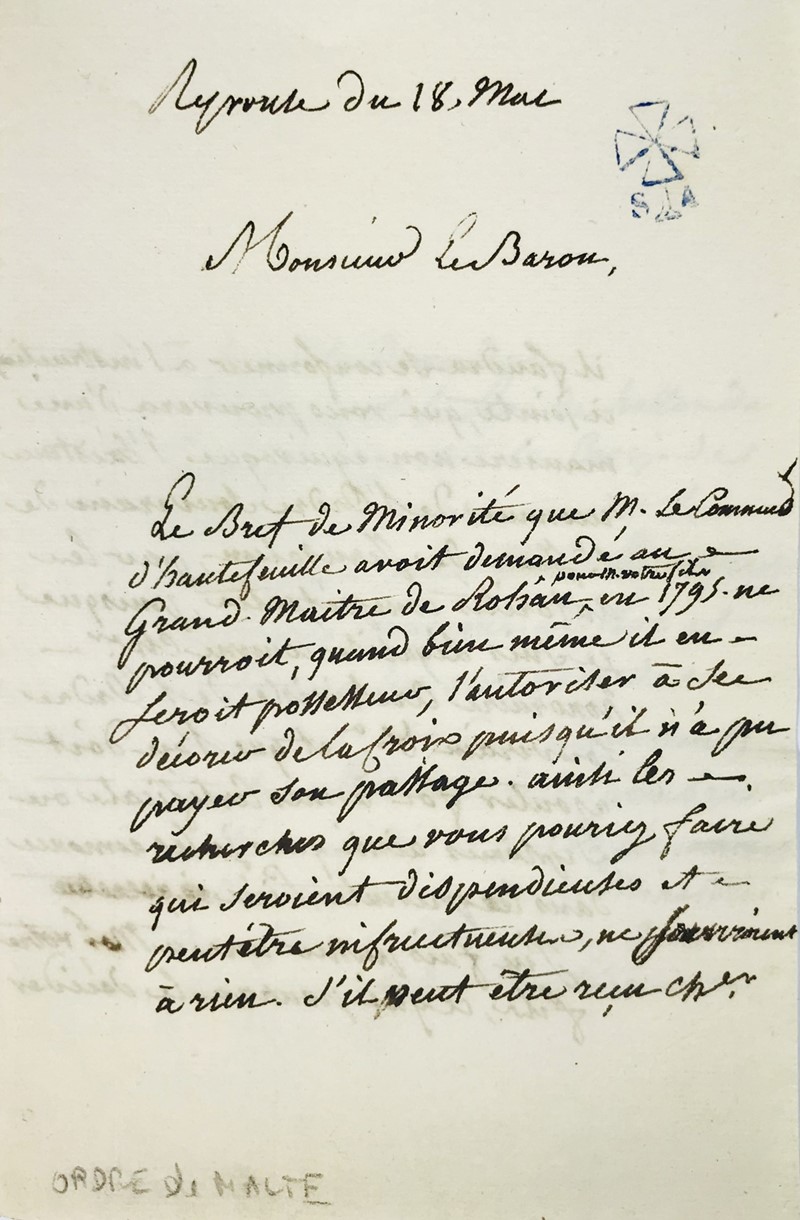 Reponse du 18. Mai
S A
Monsieur Le Baron,
Le Bref de Minorité que M. Le Command
d'hautefeuille avoit demandé au
pour M. votre fils
Grand-Maitre de Rohan, en 1795. ne
pourroit, quand bien même il en
seroit possesseur, l'autoriser à se
décorer de la Croix puisqu'il n'a pu
payer son passage. ainsi les
recherches que vous pouriez faire
qui seroient dispendieuses et
peutêtre infructueuses, ne serviroient
à rien. S'il peut être reçu cher
ORDRE de MALTE